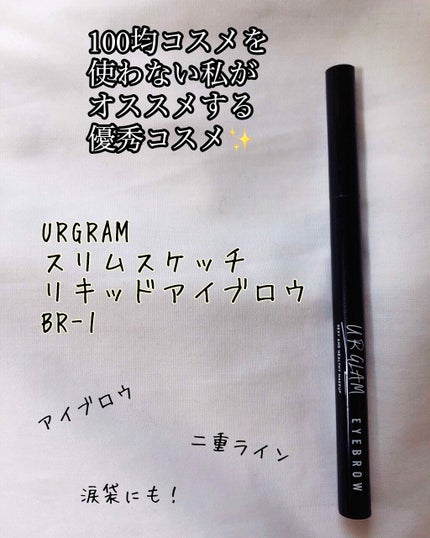 100均コスメを
使わない私が
オススメする
優秀コスメ✨
URGRAM
スリムスケッチ
リキッドアイブロウ
BR-1
アイブロウ
二重ライン
涙袋にも!
URGLAM
EYEBROW